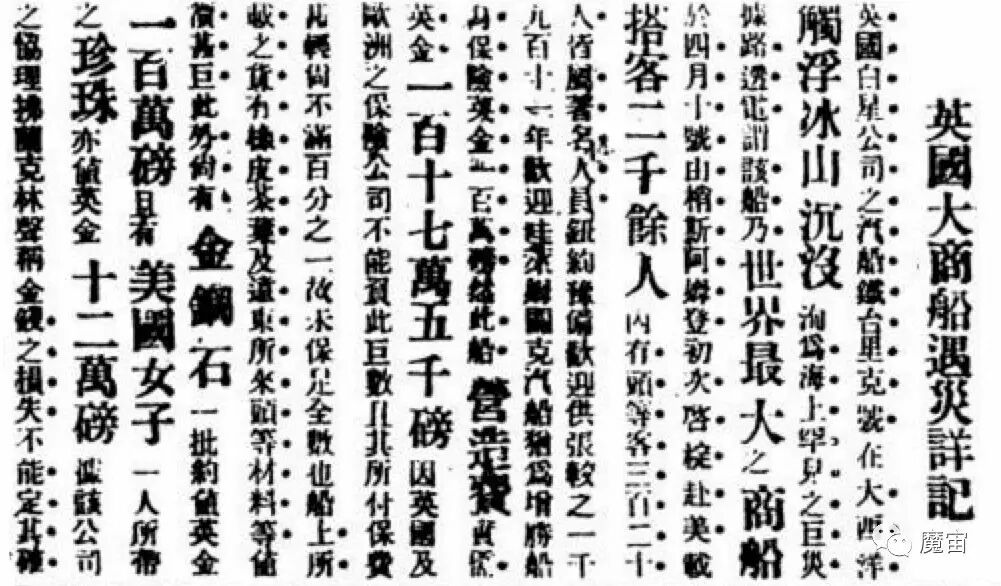 英國大商船遇災詳記
英國白星公司之汽船鐵台里克號在大西洋
觸浮冰山沉沒洵爲海上罕見之巨災
據路透電謂該船乃世界最大之商船
於四月十號由梢斯阿姆登初次啓椗赴美載
搭客二千餘人內有頭等客三百二十
人皆屬著名人員鈕約豫備歡迎供張較之一千
九百十一年歡迎哇水姆國克汽船猶爲增勝船
身保險英金一百萬磅然此船營造費實係
英金一百十七萬五千磅因英國及
歐洲之保險公司不能負此巨數且其所付保費
凡輕尙不滿百分之一故未保足全數也船上所
載之貨有橡皮茶葉及遠東所來頭等材料等值
價甚巨此外尙有金鋼石一批約値英金
一百萬磅且有美國女子一人所帶
之珍珠亦值英金十二萬磅據該公司
之協理拂蘭克林聲稱金錢之損失不能定其確
魔宙